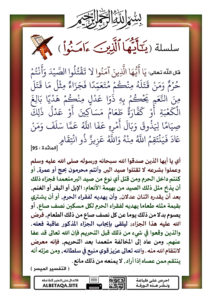 بِسْمِ اللَّهِ الرَّحْمَٰنِ الرَّحِيمِ
سلسلة ( يَـٰٓأَيُّهَا ٱلَّذِينَ ءَامَنُوا۟ )
قال الله تعالى: يَا أَيُّهَا الَّذِينَ آمَنُوا لَا تَقْتُلُوا الصَّيْدَ وَأَنْتُمْ
حُرُمٌ وَمَنْ قَتَلَهُ مِنْكُمْ مُتَعَمِّدًا فَجَزَاءٌ مِثْلُ مَا قَتَلَ
مِنَ النَّعَمِ يَحْكُمُ بِهِ ذَوَا عَدْلٍ مِنْكُمْ هَدْيًا بَالِغَ
الْكَعْبَةِ أَوْ كَفَّارَةٌ طَعَامُ مَسَاكِينَ أَوْ عَدْلُ ذَلِكَ
صِيَامًا لِيَذُوقَ وَبَالَ أَمْرِهِ عَفَا اللَّهُ عَمَّا سَلَفَ وَمَنْ
عَادَ فَيَنْتَقِمُ اللَّهُ مِنْهُ وَاللَّهُ عَزِيزٌ ذُو انْتِقَامٍ
[المائدة : 95]
أي يا أيها الذين صدقوا الله سبحانه ورسوله صلى الله عليه وسلم
وعملوا بشرعه لا تقتلوا صيد البر، وأنتم محرمون بحج أو عمرة، أو
كنتم داخل الحرم ومن قتل أي نوع من صيد البر متعمدا فجزاء ذلك
أن يذبح مثل ذلك الصيد من بهيمة الأنعام: الإبل أو البقر أو الغنم،
بعد أن يقدره اثنان عدلان، وأن يهديه لفقراء الحرم، أو أن يشتري
بقيمة مثله طعاما يهديه لفقراء الحرم لكل مسكين نصف صاع، أو
يصوم بدلا من ذلك يوما عن كل نصف صاع من ذلك الطعام، فرض
الله عليه هذا الجزاء; ليلقى بإيجاب الجزاء المذكور عاقبة فعله.
والذين وقعوا في شيء من ذلك قبل التحريم فإن الله تعالى قد عفا
عنهم، ومن عاد إلى المخالفة متعمدا بعد التحريم، فإنه معرض
لانتقام الله منه. والله تعالى عزيز قوي منيع في سلطانه، ومن عزته أنه
ينتقم ممن عصاه إذا أراد، لا يمنعه من ذلك مانع.
[ التفسير الميسر ]
ALBETAQA.SITE